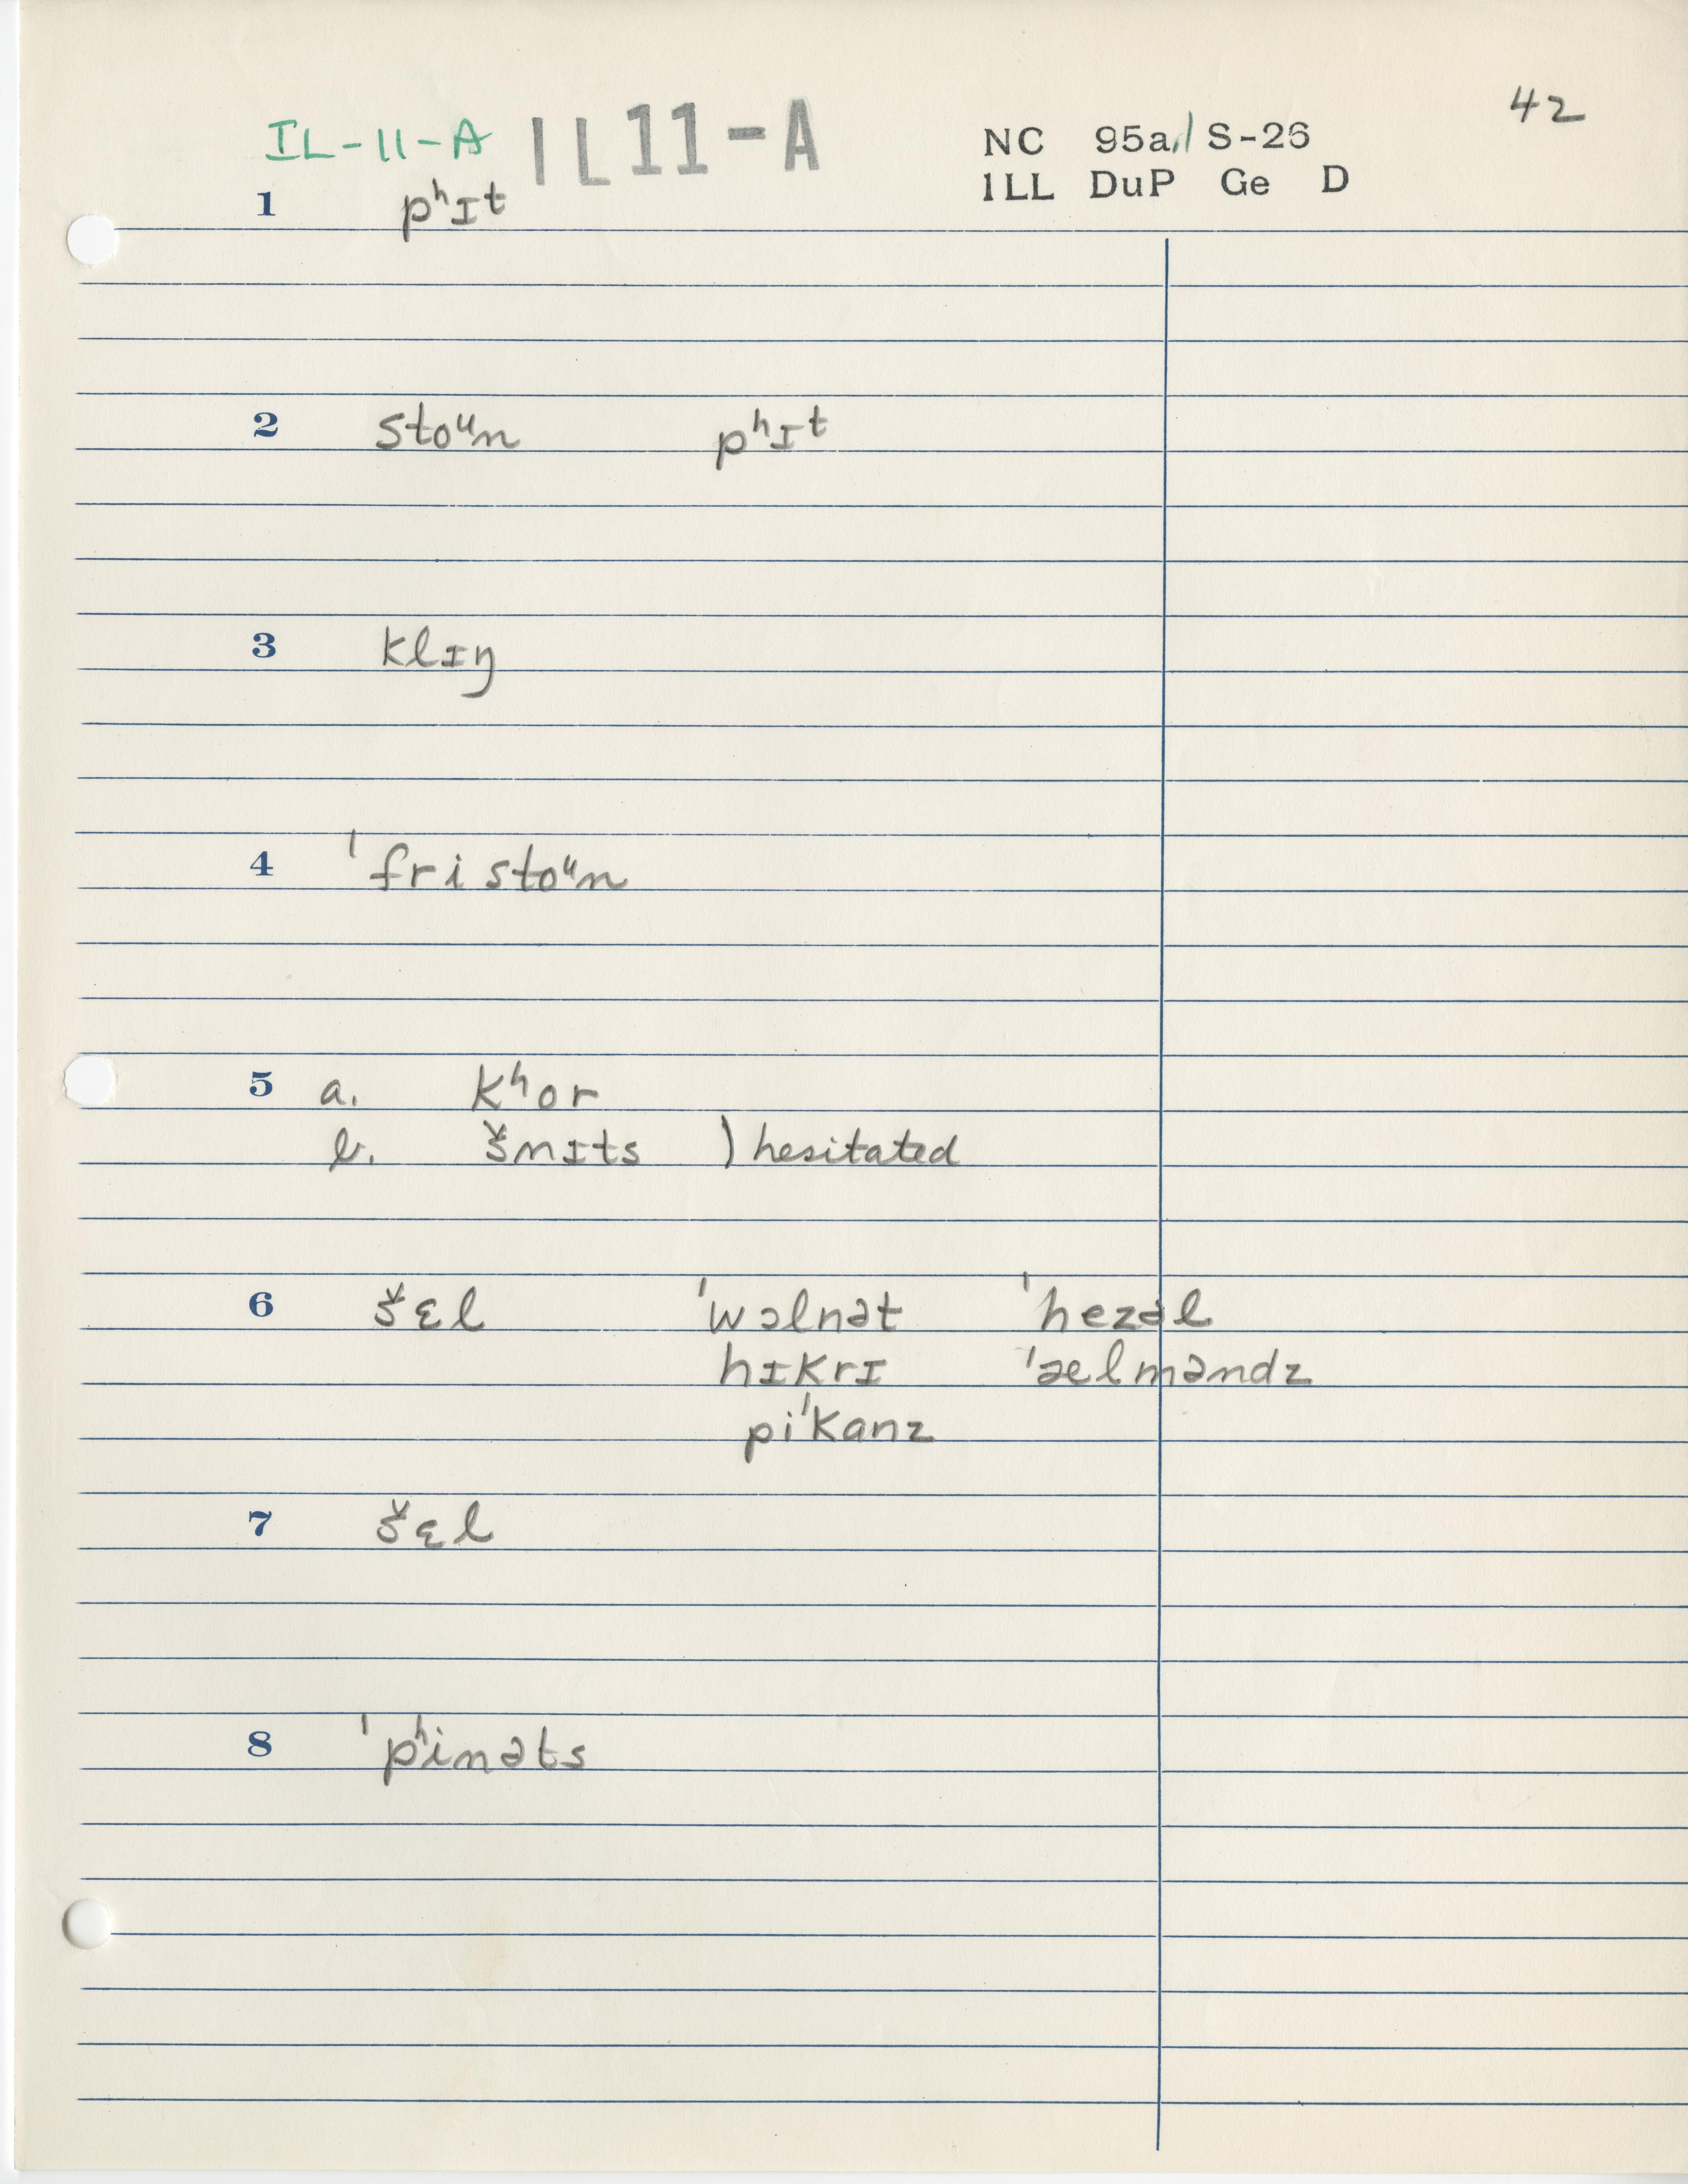 42
IL-11-A IL11-A NC 95a/ S-26
ILL DuP Ge D
1 pʰɪt
2 stoᵘn pʰɪt
3 klɪŋ
4 ˈfristoᵘn
5 a. kʰor
b. šnɪts ) hesitated
6 šɛl ˈwɔlnət ˈhezəl
hɪkrɪ ˈælməndz
piˈkanz
7 šɛl
8 ˈpʰinəts